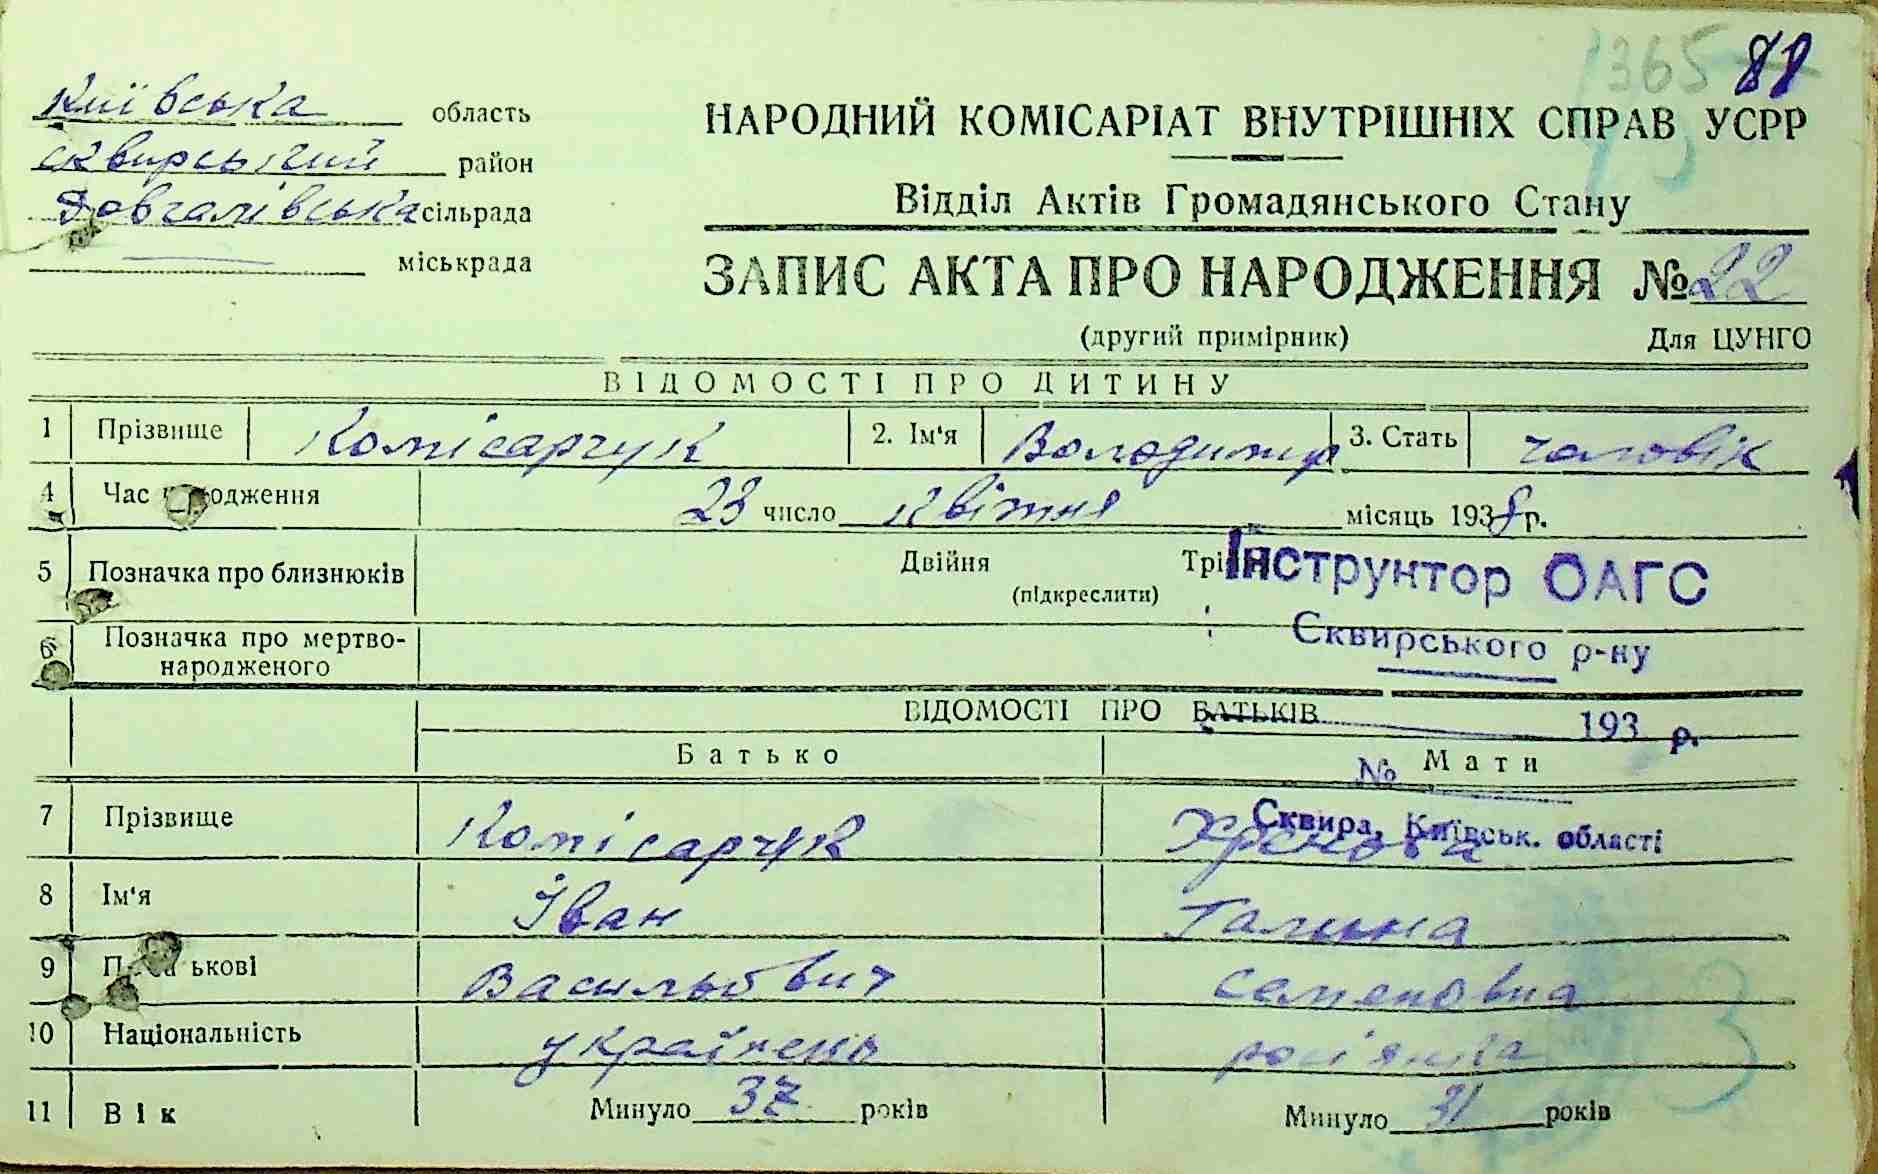 1365 81
Київська область
Сквирський район
Довгалівська сільрада
міськрада
НАРОДНИЙ КОМІСАРІАТ ВНУТРІШНІХ СПРАВ УСРР
Відділ Актів Громадянського Стану
ЗАПИС АКТА ПРО НАРОДЖЕННЯ № 22
(другий примірник) Для ЦУНГО
ВІДОМОСТІ ПРО ДИТИНУ
1 Прізвище Комісарчук 2. Ім'я Володимир 3. Стать чоловік
4 Час народження 23 число квітня місяць 1938 р.
5 Позначка про близнюків Двійня Трі
(підкреслити)
Інструктор ОАГС
Сквирського р-ну
6 Позначка про мертво-
народженого
ВІДОМОСТІ ПРО БАТЬКІВ
193 р.
Батько Мати
№
Сквира, Київськ. області
7 Прізвище Комісарчук
8 Ім'я Іван Галина
9 По батькові Васильович Семеновна
10 Національність українець росіянка
11 Вік Минуло 37 років Минуло 31 років
3